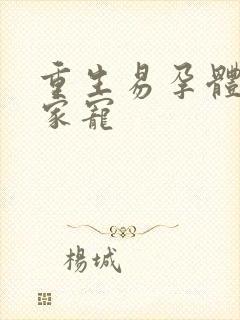 重生易孕體
家寵
楊城